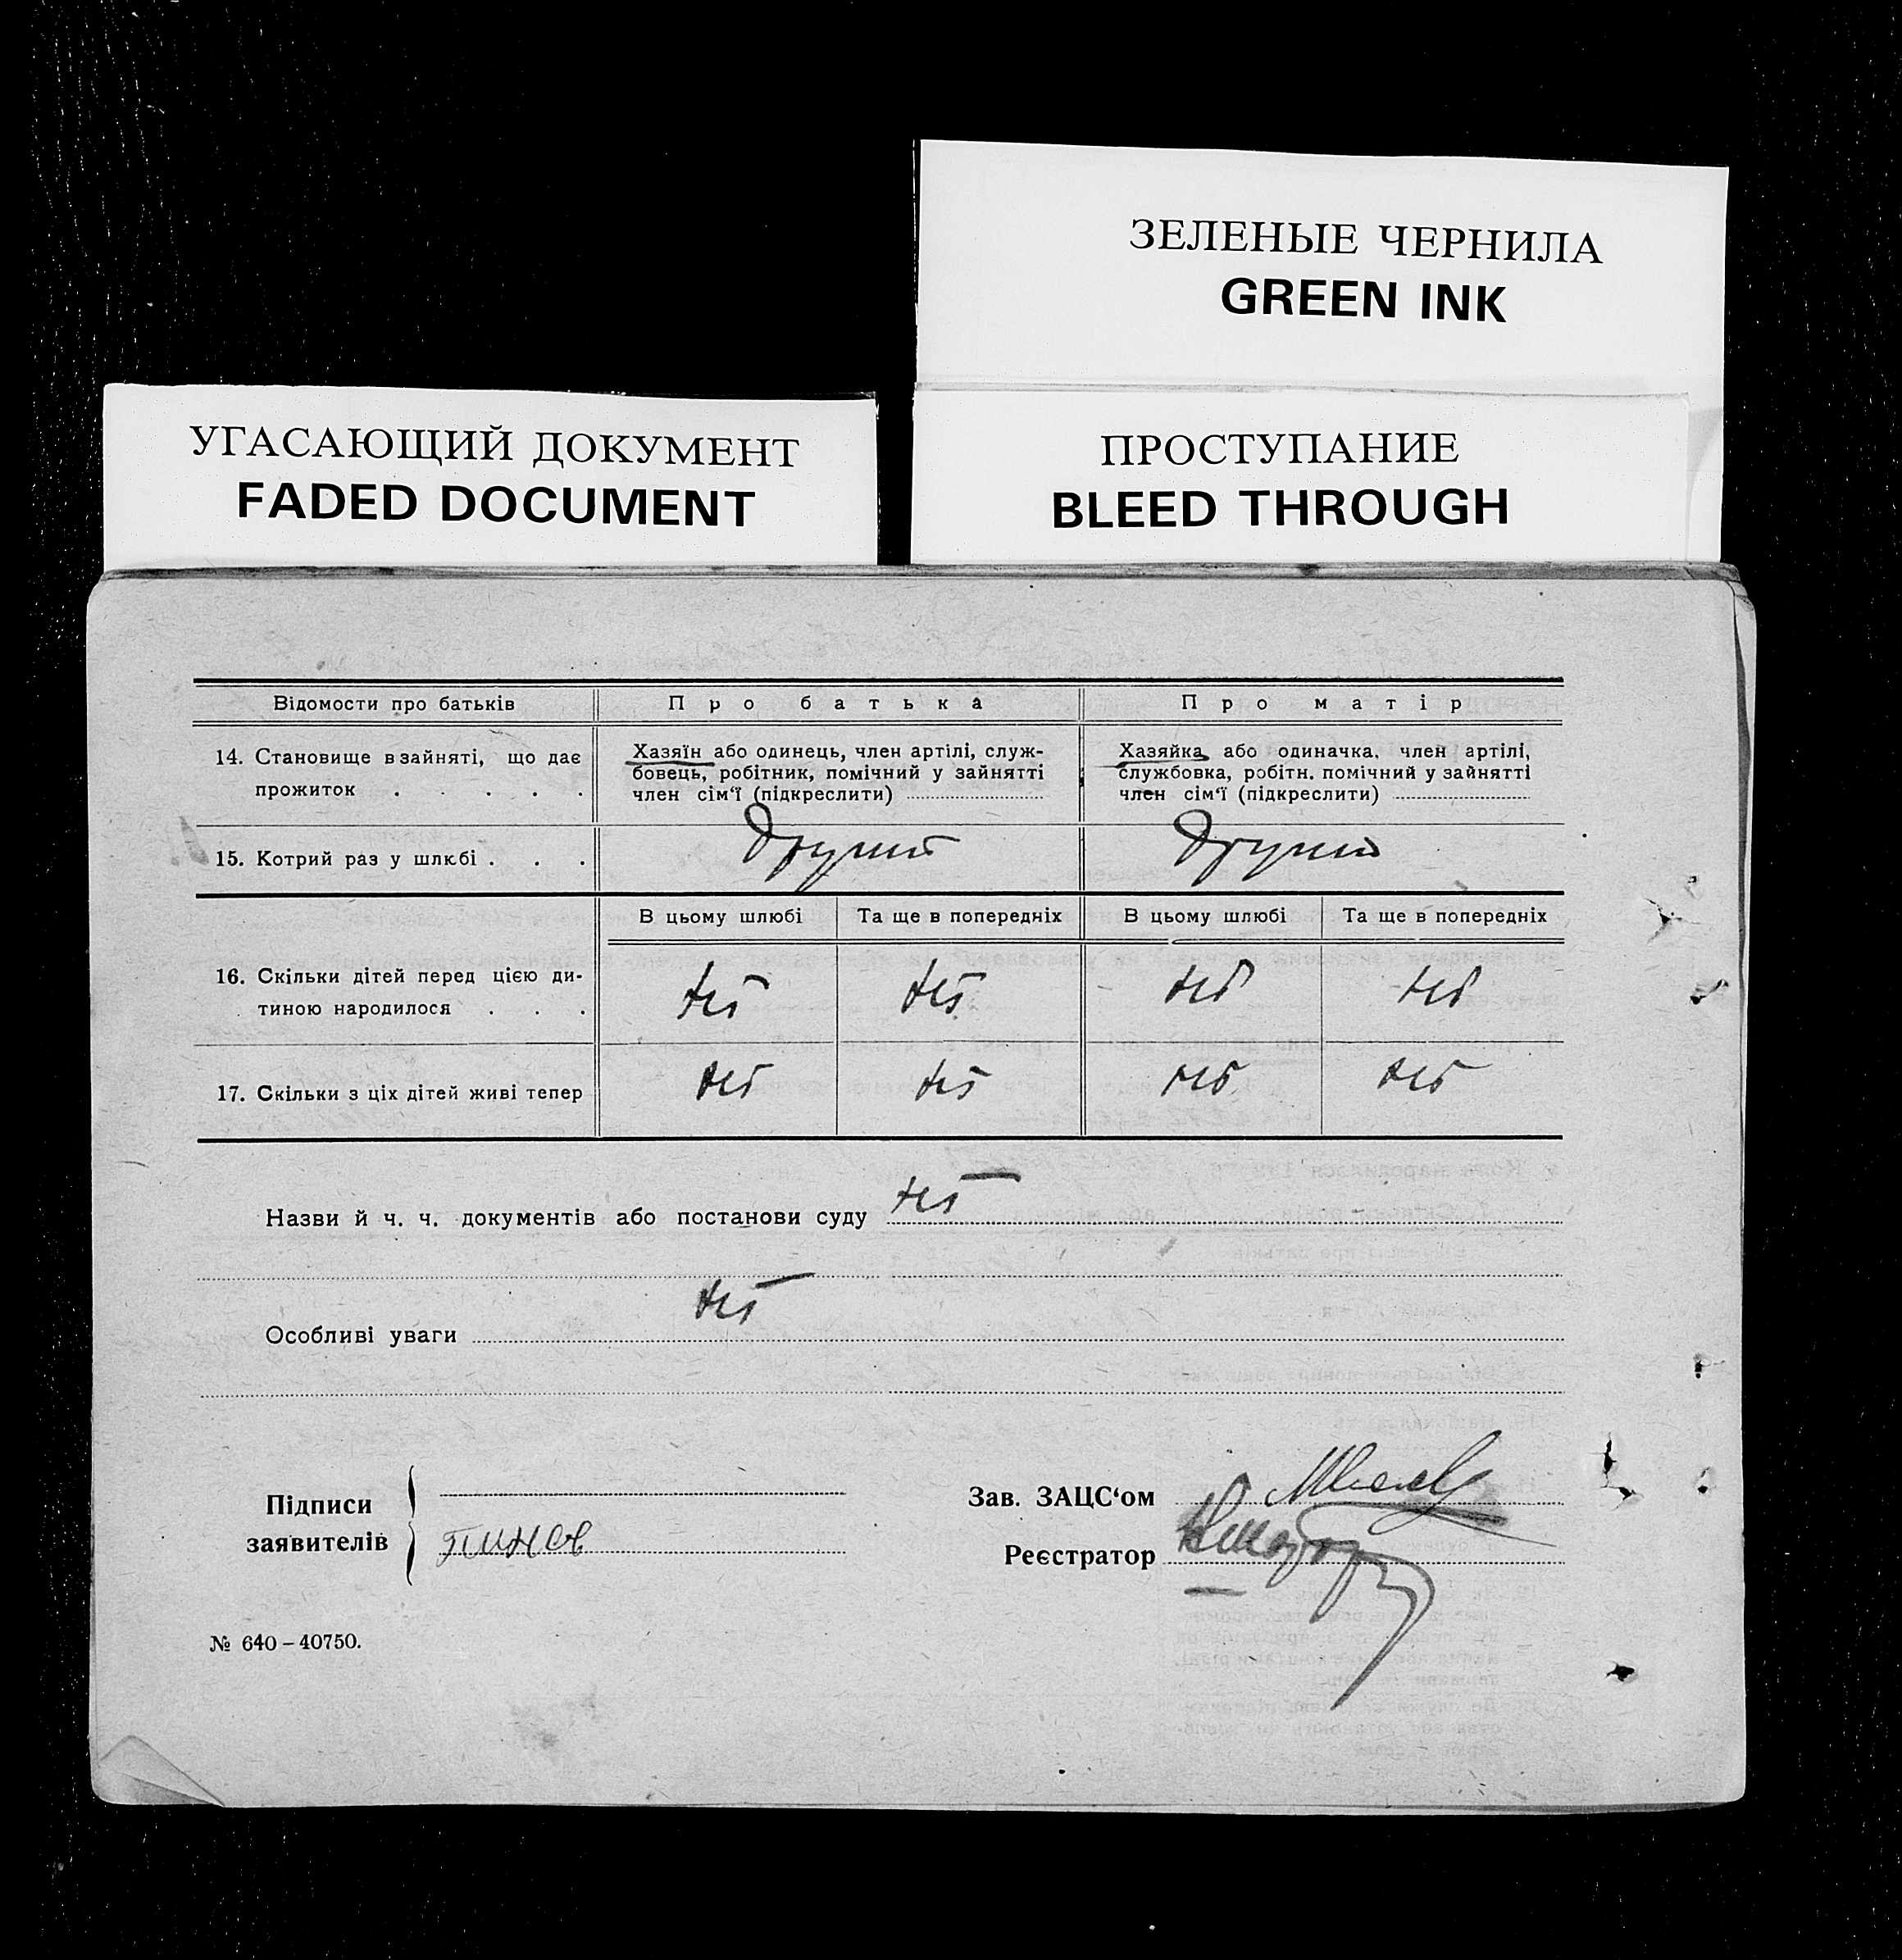 ЗЕЛЕНЫЕ ЧЕРНИЛА
GREEN INK
УГАСАЮЩИЙ ДОКУМЕНТ
FADED DOCUMENT
ПРОСТУПАНИЕ
BLEED THROUGH
Відомости про батьків
Про батька
Про матір
14. Становище в зайняті, що дає
прожиток . . . . .
Хазяїн або одинець, член артілі, служ-
бовець, робітник, помічний у зайнятті
член сім‘ї (підкреслити)
Хазяйка або одиначка, член артілі,
службовка, робітн. помічний у зайнятті
член сім‘ї (підкреслити)
15. Котрий раз у шлюбі . . .
другий
другий
В цьому шлюбі
Та ще в попередніх
В цьому шлюбі
Та ще в попередніх
16. Скільки дітей перед цією ди-
тиною народилося . . .
17. Скільки з ціх дітей живі тепер
Назви й ч. ч. документів або постанови суду
Особливі уваги
Підписи
заявителів
Зав. ЗАЦС‘ом
Реєстратор
№ 640–40750.